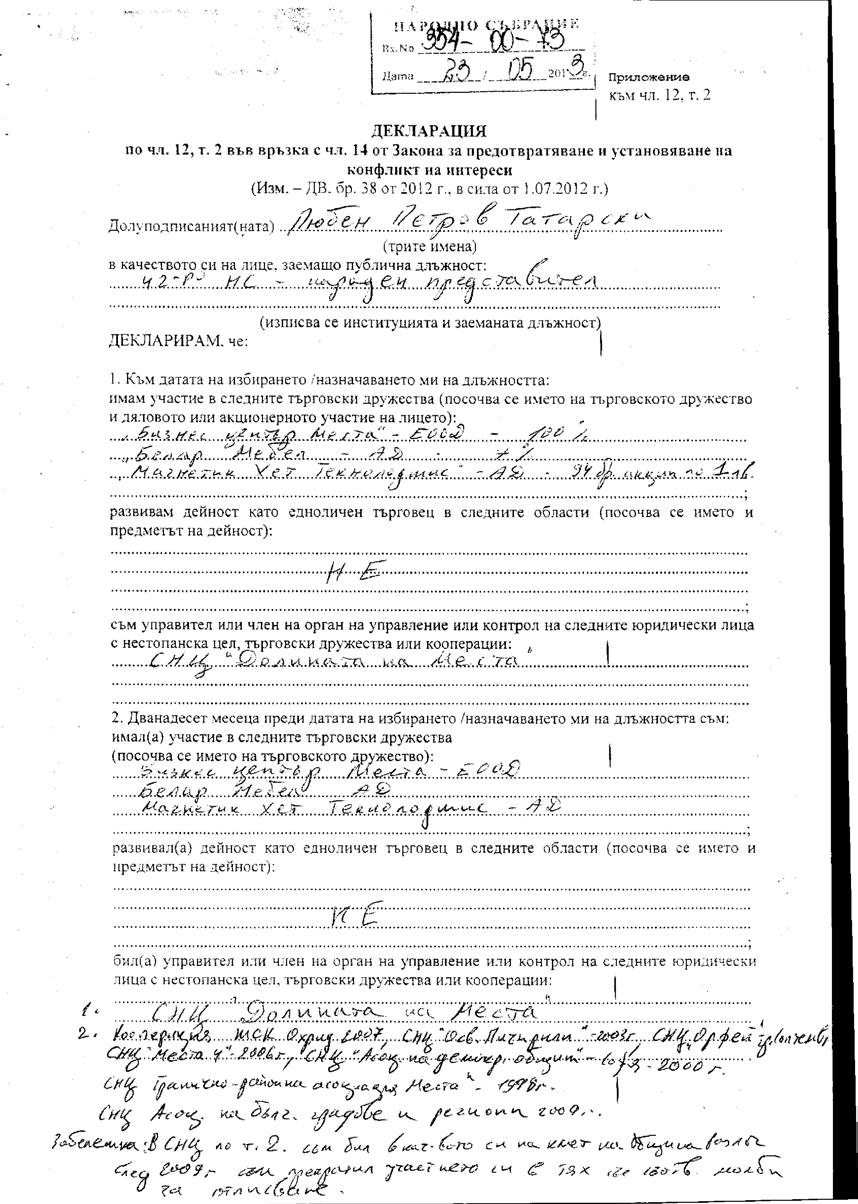 НАРОДНО СЪБРАНИЕ
Вх.No 354-00-73
Дата 23 / 05 2013 г.
Приложение
към чл. 12, т. 2
ДЕКЛАРАЦИЯ
по чл. 12, т. 2 във връзка с чл. 14 от Закона за предотвратяване и установяване на
конфликт на интереси
(Изм. – ДВ. бр. 38 от 2012 г., в сила от 1.07.2012 г.)
Долуподписаният(ната) Любен Петров Татарски
(трите имена)
в качеството си на лице, заемащо публична длъжност:
42-РО НС - народен представител
(изписва се институцията и заеманата длъжност)
ДЕКЛАРИРАМ, че:
1. Към датата на избирането /назначаването ми на длъжността:
имам участие в следните търговски дружества (посочва се името на търговското дружество
и дяловото или акционерното участие на лицето):
"Бизнес център Места" - ЕООД - 100 %
"Белар Мебел - АД - 7 %
"Магнетик Хет Технолоджис" - АД - 94 бр. акции по 1 лв.
развивам дейност като едноличен търговец в следните области (посочва се името и
предметът на дейност):
НЕ
съм управител или член на орган на управление или контрол на следните юридически лица
с нестопанска цел, търговски дружества или кооперации:
СНЦ "Долината на Места
2. Дванадесет месеца преди датата на избирането /назначаването ми на длъжността съм:
имал(а) участие в следните търговски дружества
(посочва се името на търговското дружество):
Бизнес център Места - ЕООД
Белар Мебел АД
Магнетик Хет Технолоджис - АД
развивал(а) дейност като едноличен търговец в следните области (посочва се името и
предметът на дейност):
НЕ
бил(а) управител или член на орган на управление или контрол на следните юридически
лица с нестопанска цел, търговски дружества или кооперации:
1. СНЦ "Долината на Места"
2. Кооперация ЖСК Охрид 2007, СНЦ "Осв. Пичирили" - 2003г. СНЦ "Орфей
СНЦ "Места 4" - 2006г., СНЦ "Асоц. на демокр. общит" - 2000 г.
СНЦ Гранично-районна асоциация Места" - 1998г.
СНЦ Асоц. на бълг. градове и региони 2009.
Забележка: В СНЦ по т. 2. съм бил в кач-вото си на кмет на Община Разлог
след 2009г съм прекратил участието си в тях със съотв. молби
за отписване.